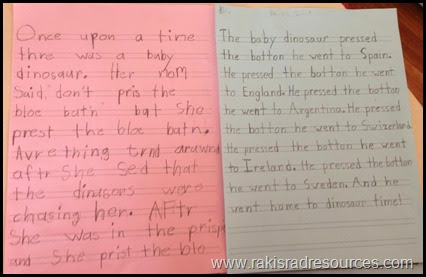 Once upon a time
thre was a baby
dinosaur. Her mom
said, don't pris the
bloe batn bat she
prest the bloe batn.
Avrething trnd arawnd
aftr she sed that
the dinasors were
chasing her. AFtr
She was in the prisin
and she prist the blo
The baby dinosaur pressed
the botton he went to Spain.
He pressed the botton he went
to England. He pressed the botton
he went to Argentina. He pressed
the botton he went to Swizerland.
He pressed the botton he went
to Ireland. He pressed the botton
he went to Sweden. And he
went home to dinosaur time!
www.rakisradresources.com